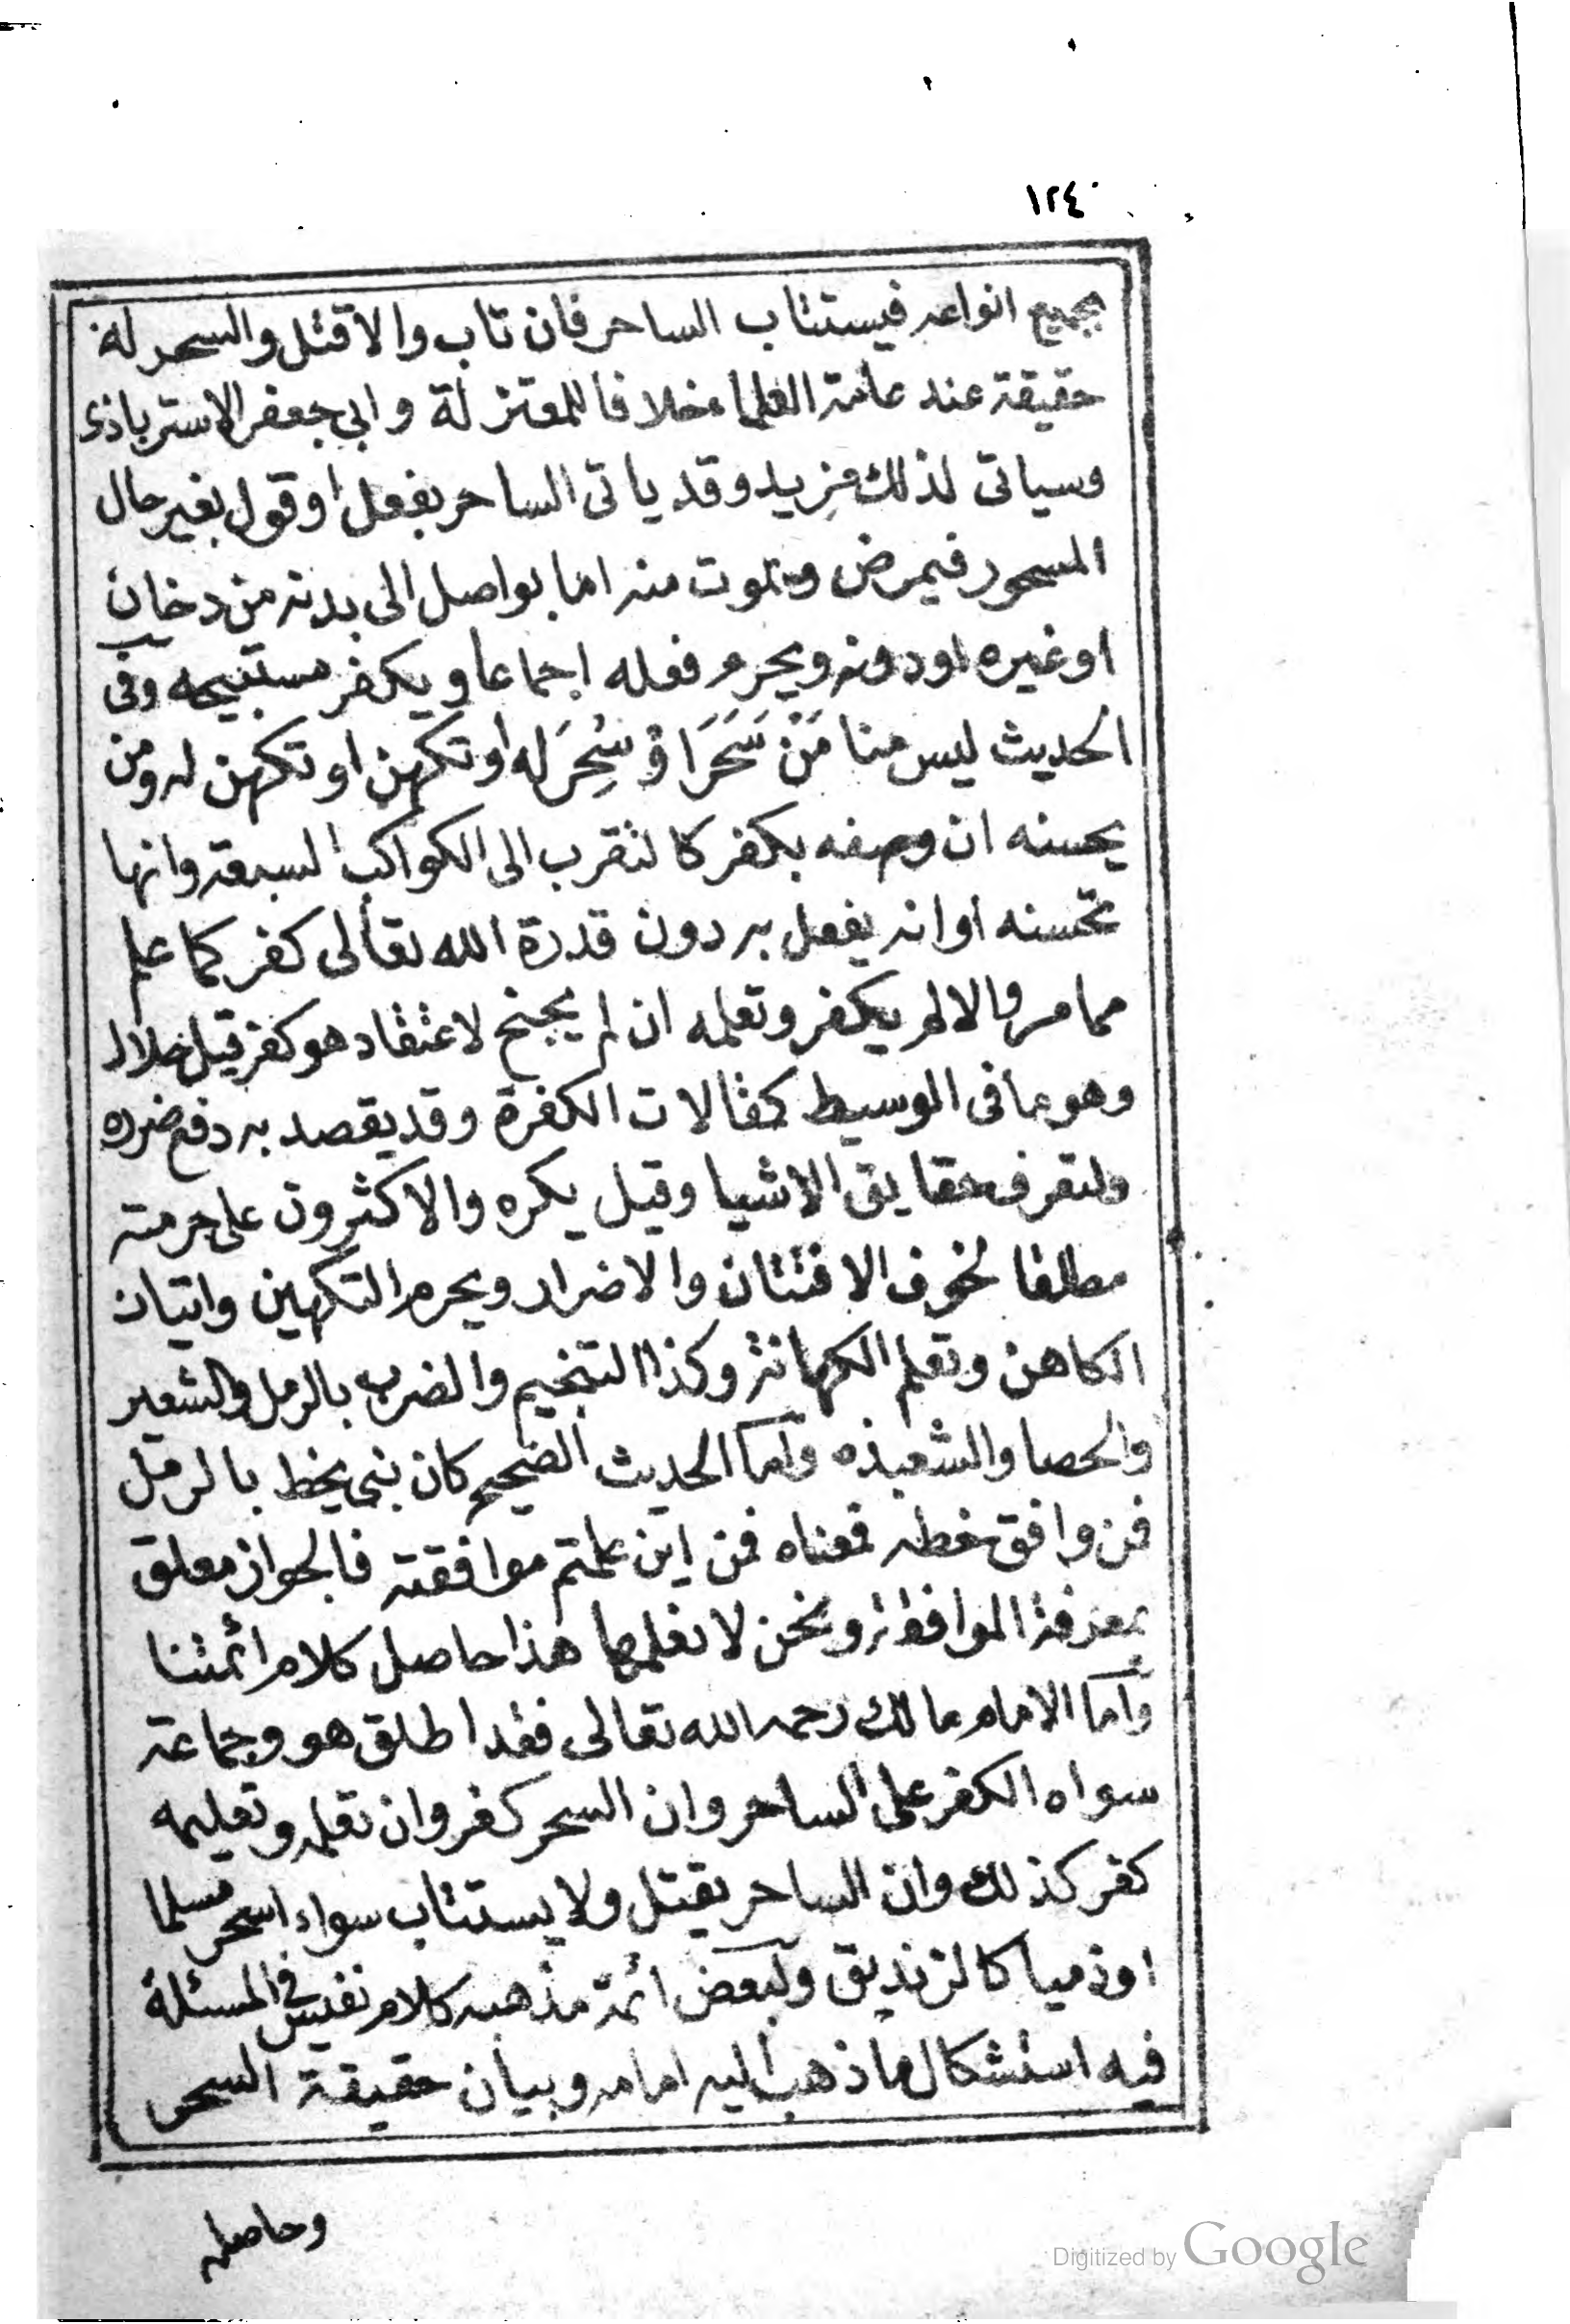 ١٢٤
بجميع انواعه فيستتاب الساحر فان تاب والا قتل والسحر له
حقيقة عند عامة العلماء خلافا للمعتزلة وابي جعفر الاسترباذى
وسياتى لذلك مزيد وقد ياتى الساحر بفعل او قول بغير حال
المسحور فيمرض ويموت منه اما بواصل الى بدنه من دخان
او غيره او دونه ويحرم فعله اجماعا ويكفر مستبيحه وفى
الحديث ليس منا مَنْ سَحَرَ اوْ سُحِرَ له او تكهن او تكهن له ومن
يحسنه ان وصفه بكفر كالتقرب الى الكواكب السبعة وانها
تحسنه او انه يفعل به دون قدرة الله تعالى كفر كما علم
مما مر والا لم يكفر وتعلمه ان لم يجنح لاعتقاد هو كفر قيل حلال
وهو ما فى الوسيط كمقالات الكفرة وقد يقصد به دفع ضرره
ولتعرف حقايق الاشيا وقيل يكره والاكثرون على حرمته
مطلقا لخوف الافتتان والاضرار ويحرم التكهين واتيان
الكاهن وتعلم الكهانة وكذا التنجيم والضرب بالرمل والشعير
والحصا والشعبذه وَاما الحديث الصحيح كان نبي يخط بالرمل
فمن وافق خطه فمعناه فمن اين علمتم موافقته فالجواز معلق
بمعرفة الموافقة ونحن لا نعلمها هذا حاصل كلام ائمتنا
وَاما الامام مالك رحمه الله تعالى فقد اطلق هو وجماعة
سواه الكفر على الساحر وان السحر كفر وان تعلمه وتعليمه
كفر كذلك وان الساحر يقتل ولا يستتاب سواء اسحر مسلما
او ذميا كالزنديق ولبعض ائمة مذهبه كلام نفيس في المسئلة
فيه استشكال ما ذهب اليه امامه وبيان حقيقة السحر
وحاصله
Digitized by Google